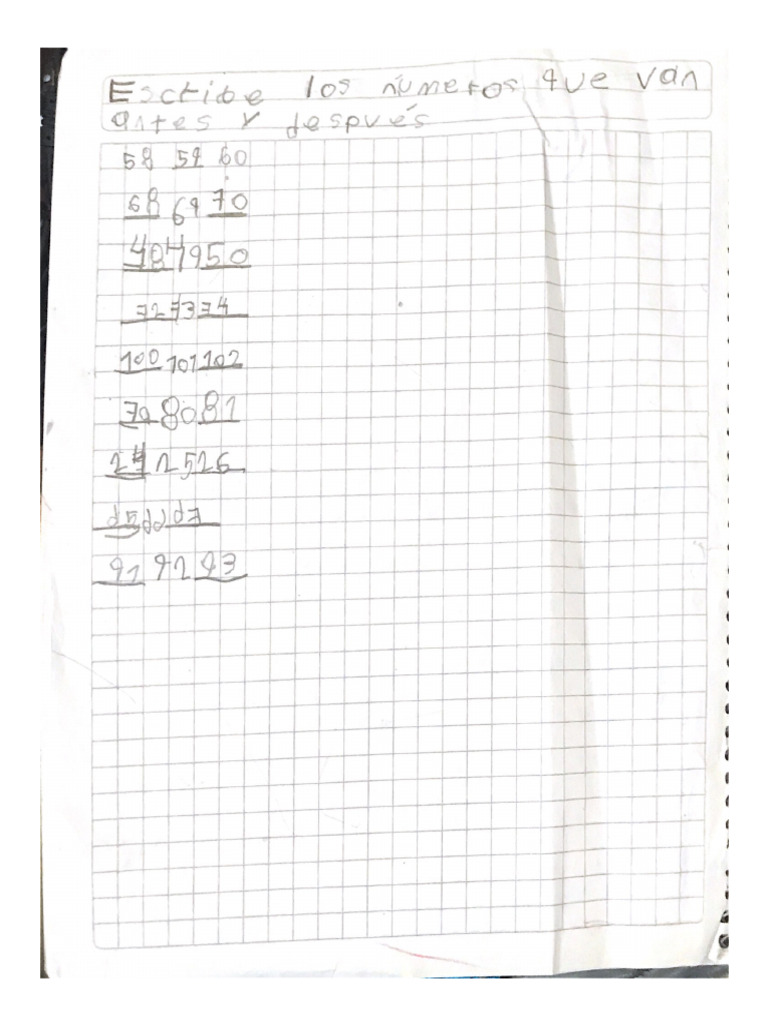 Escribe los números que van
antes y después
58 59 60
68 69 70
48 49 50
72 73 74
100 101 102
79 80 81
24 25 26
91 92 93